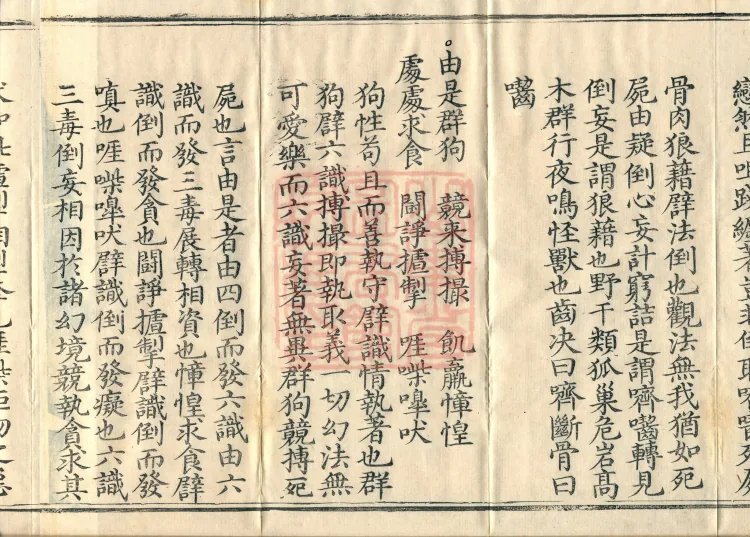 骨肉狼藉譬法倒也觀法無我猶如死
屍由疑倒心妄計窮詰是謂嚌齧轉見
倒妄是謂狼藉也野干類狐巢危岩髙
木群行夜鳴怪獸也齒决曰嚌斷骨曰
齧
由是群狗 競来搏撮 飢羸慞惶
處處求食 鬪諍摣掣 啀喍嘷吠
狗性苟且而善執守譬識情執著也群
狗譬六識搏撮即執取義一切幻法無
可愛樂而六識妄著無異群狗競搏死
屍也言由是者由四倒而發六識由六
識而發三毒展轉相資也慞惶求食譬
識倒而發貪也鬪諍摣掣譬識倒而發
嗔也啀喍嘷吠譬識倒而發癡也六識
三毒倒妄相因於諸幻境競執貪求其